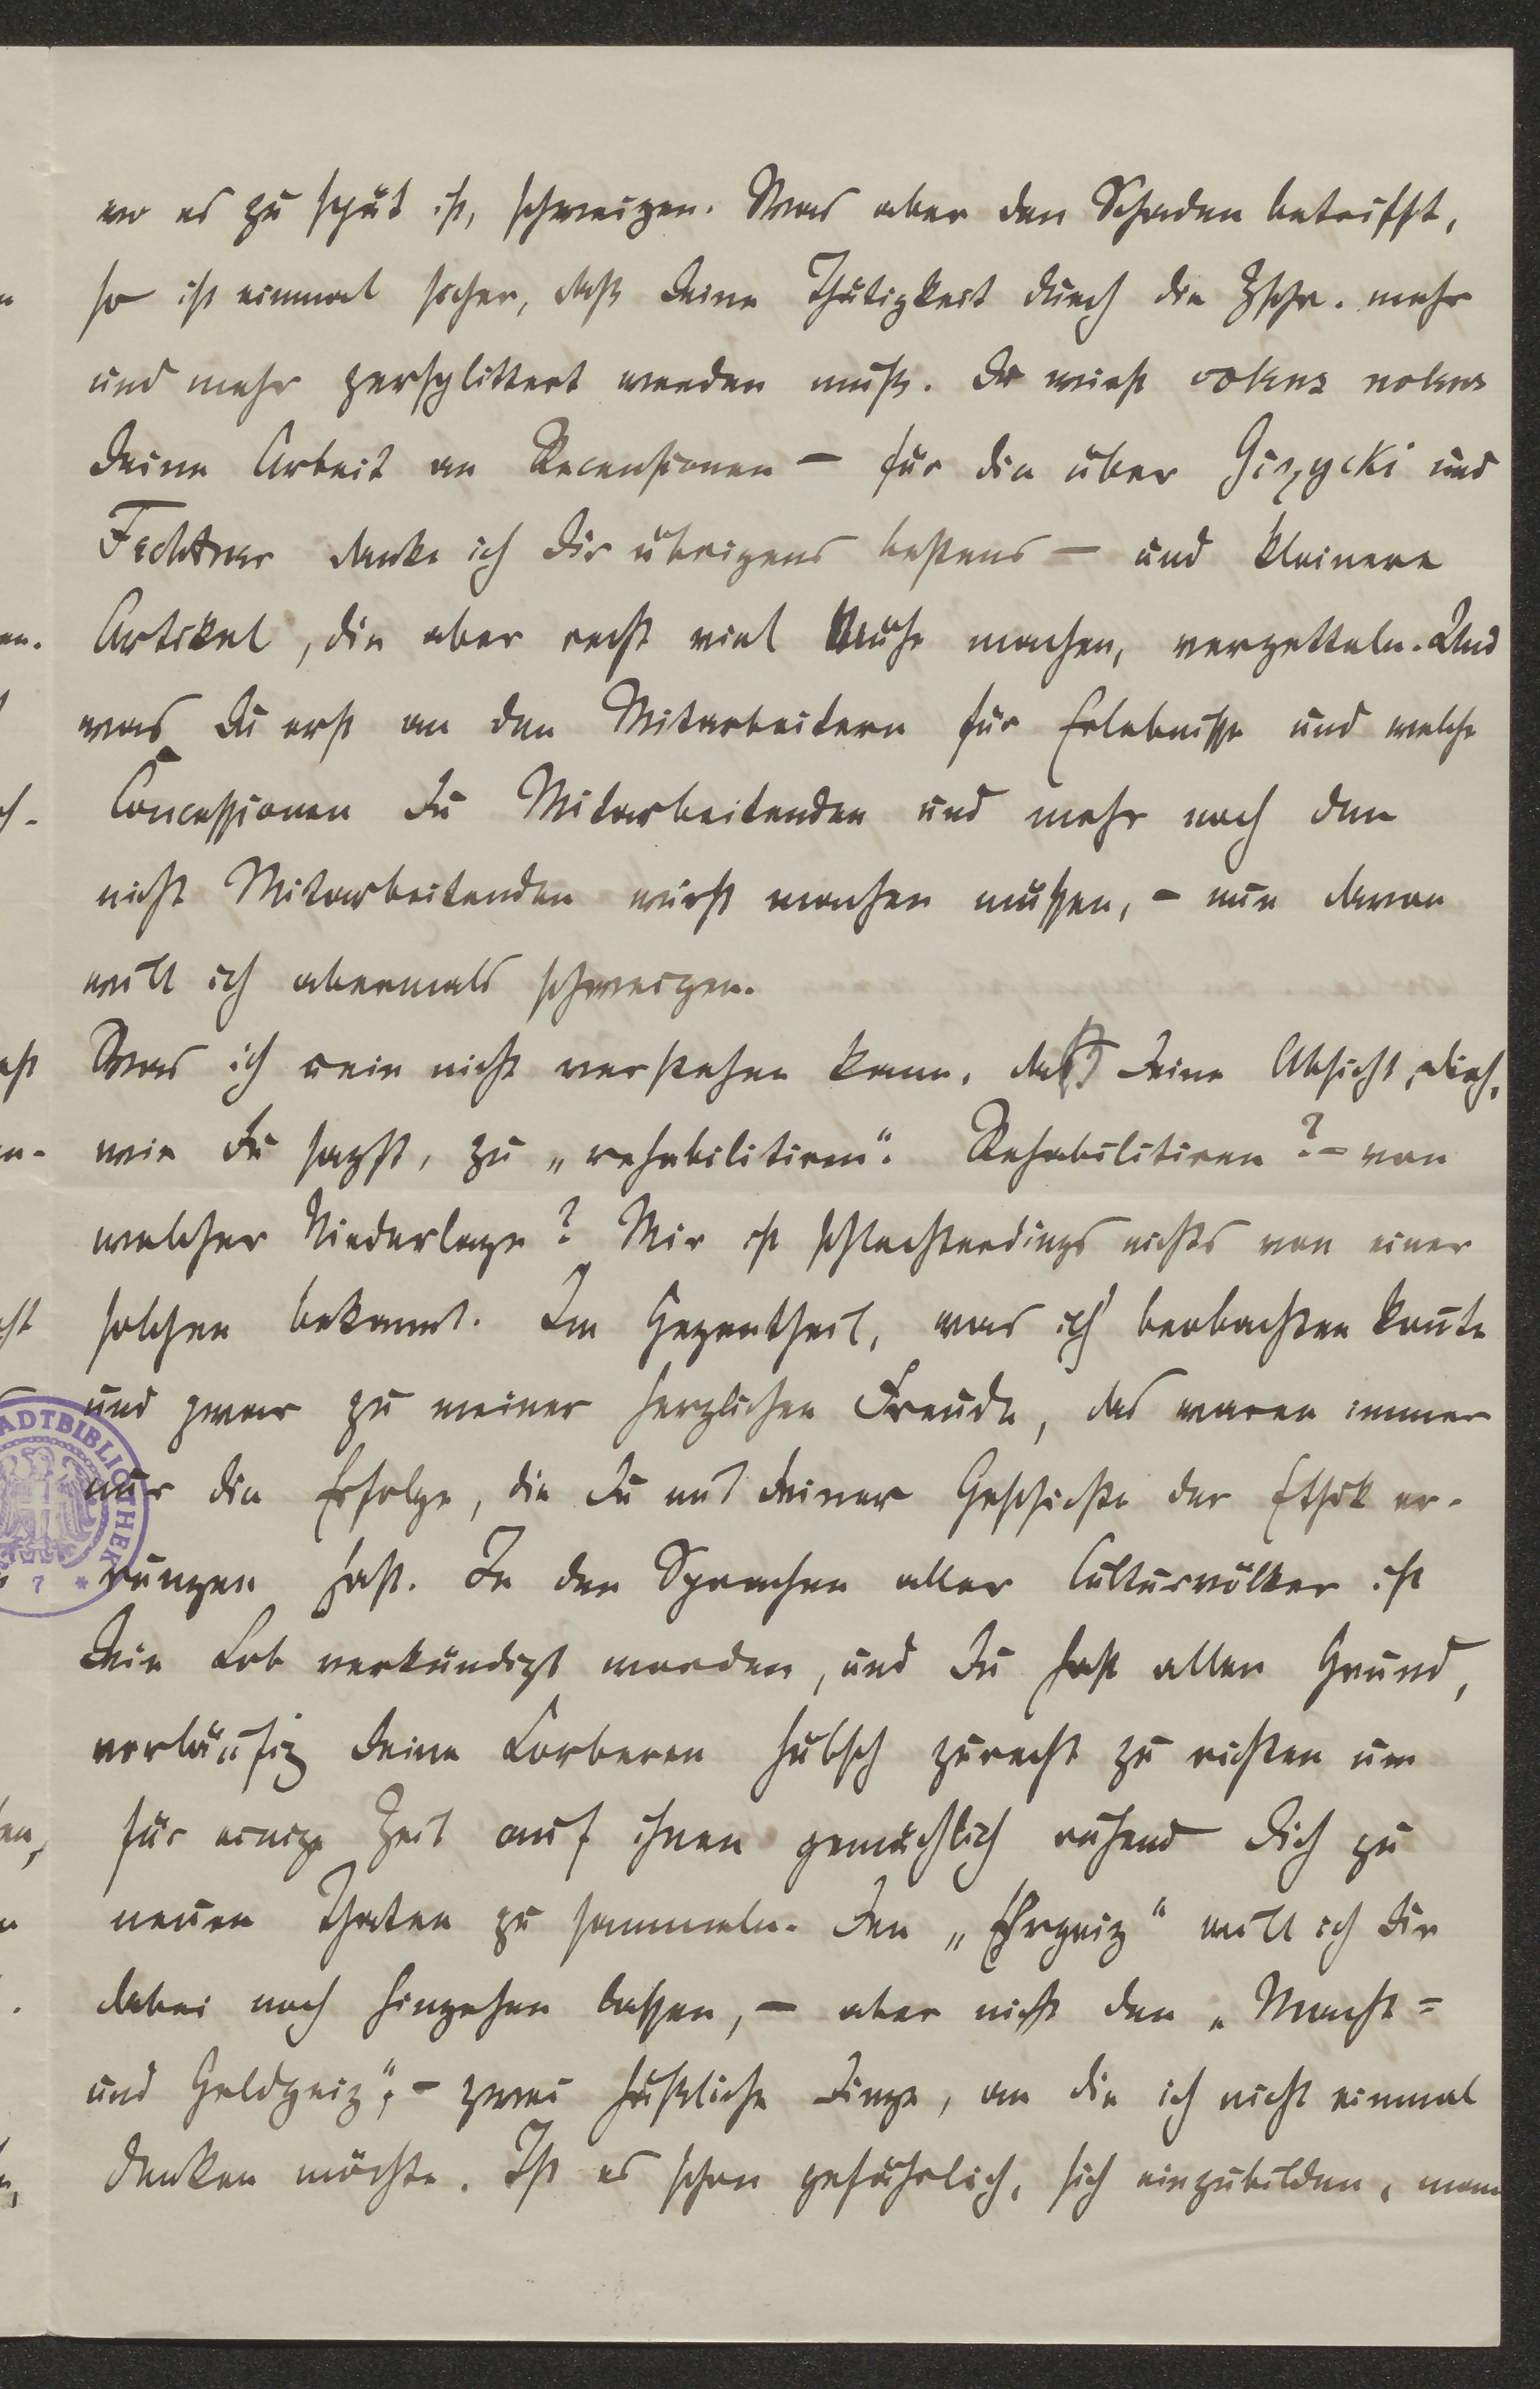 wo es zu spät ist, schweigen. Was aber den Schaden betrifft,
so ist einmal sicher, daß Deine Thätigkeit durch die Zschr. mehr
und mehr zersplittert werden muß. Du wirst volens nolens
Deine Arbeit an Recensionen — für die über Gizycki und
Fechtner danke ich Dir übrigens bestens — und kleinere
Artikel, die aber recht viel Mühe machen, verzetteln. Und
was Du erst an den Mitarbeitern für Erlebnisse und welche
Concessionen Du Mitarbeitenden und mehr noch den
nicht Mitarbeitenden wirst machen müssen, - nun davon
will ich abermals schweigen.
Was ich rein nicht verstehen kann, das ist Deine Absicht, Dich,
wie Du sagst, zu „rehabilitiren“. Rehabilitiren? - von
welcher Niederlage? Mir ist schlechterdings nichts von einer
solchen bekannt. Im Gegentheil, was ich beobachten konnte
und zwar zu meiner herzlichen Freude, das waren immer
nur die Erfolge, die Du mit Deiner Geschichte der Ethik er-
rungen hast. In den Sprachen aller Culturvölker ist
Dein Lob verkündigt worden, und Du hast allen Grund,
vorläufig Deine Lorberen hübsch zurecht zu richten um
für einige Zeit auf ihnen gemächlich ruhend Dich zu
neuen Thaten zu sammeln. Den „Ehrgeiz“ will ich Dir
dabei noch hingehen lassen, — aber nicht den „Macht=
und Geldgeiz“, - zwei häßliche Dinge, an die ich nicht einmal
denken möchte. Ist es schon gefährlich, sich einzubilden, man
STADTBIBLIOTHEK